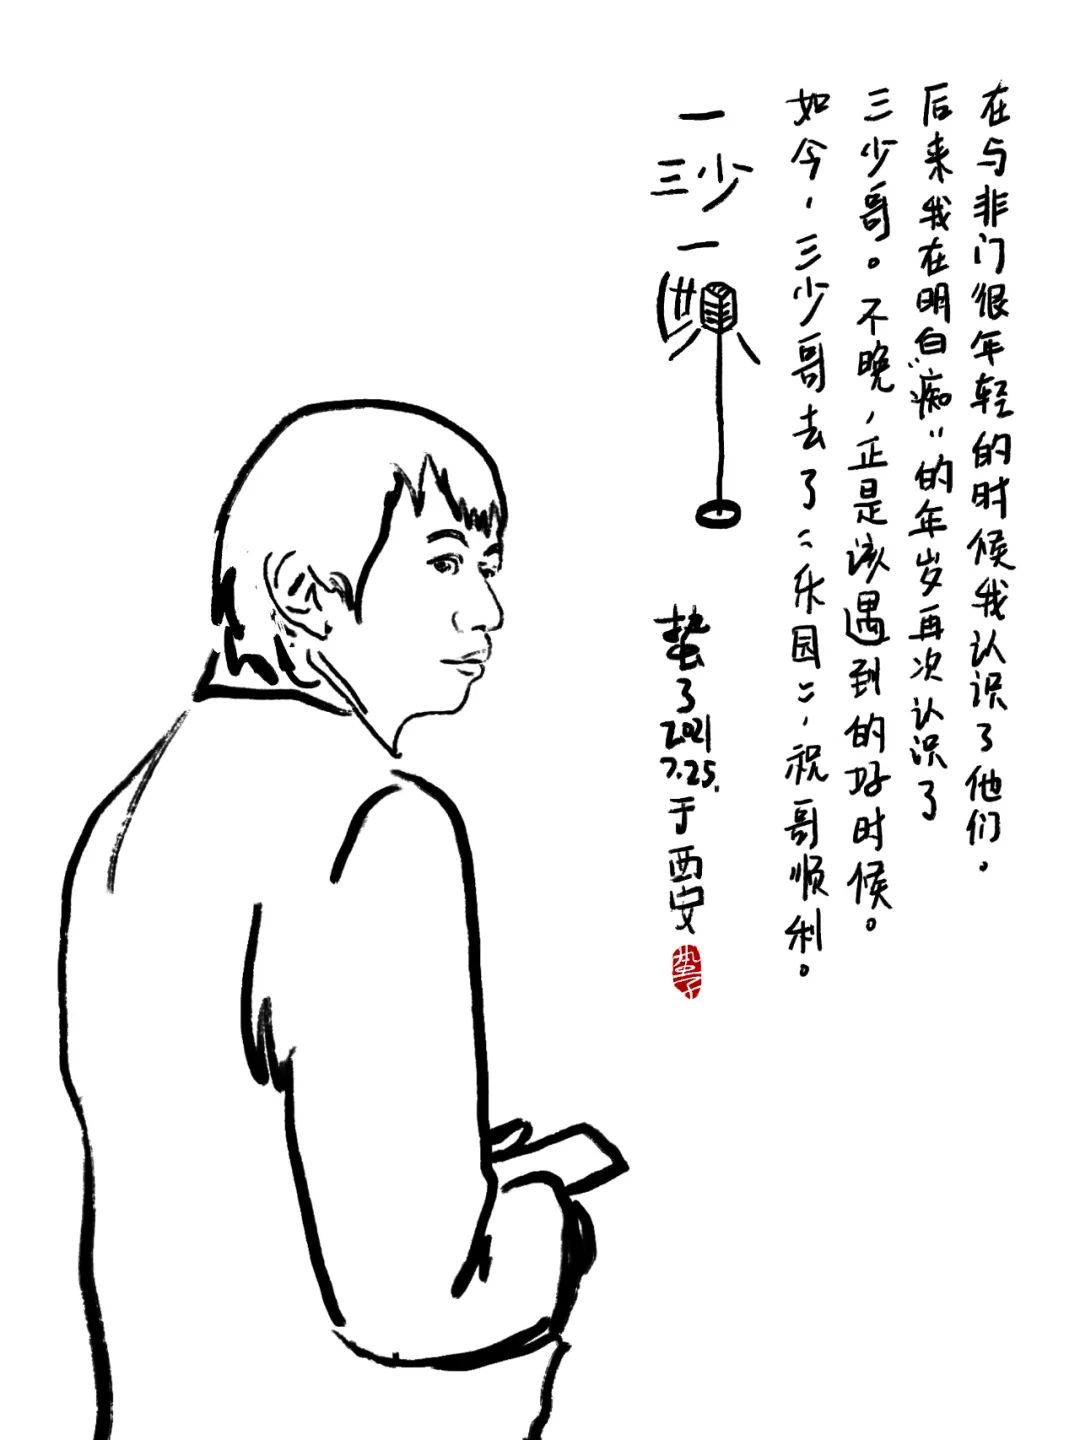 在与非门很年轻的时候我认识了他们。
后来我在明白“痴”的年岁再次认识了
三少哥。不晚，正是该遇到的好时候。
如今，三少哥去了“乐园”，祝哥顺利。
一
三少
一
蛰子
2021
7.25.
于西安
蛰子